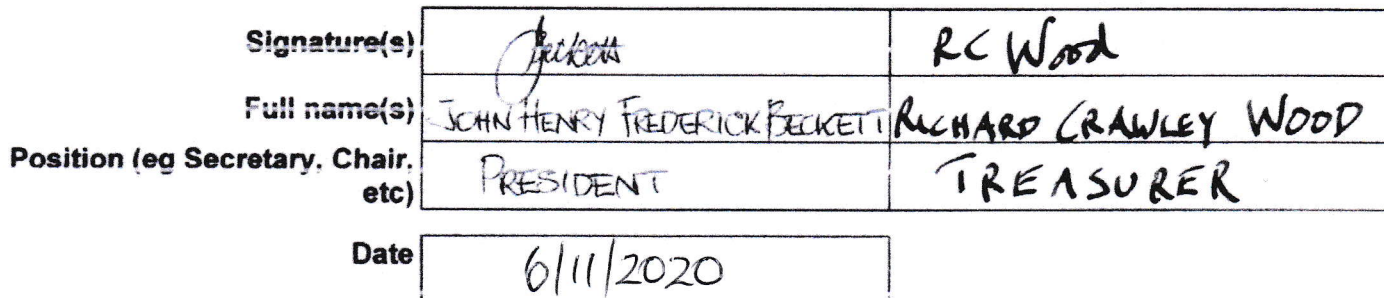 Signature(s) Beckett RC Wood
Full name(s) JOHN HENRY FREDERICK BECKETT RICHARD CRAWLEY WOOD
Position (eg Secretary, Chair, etc) PRESIDENT TREASURER
Date 6/11/2020